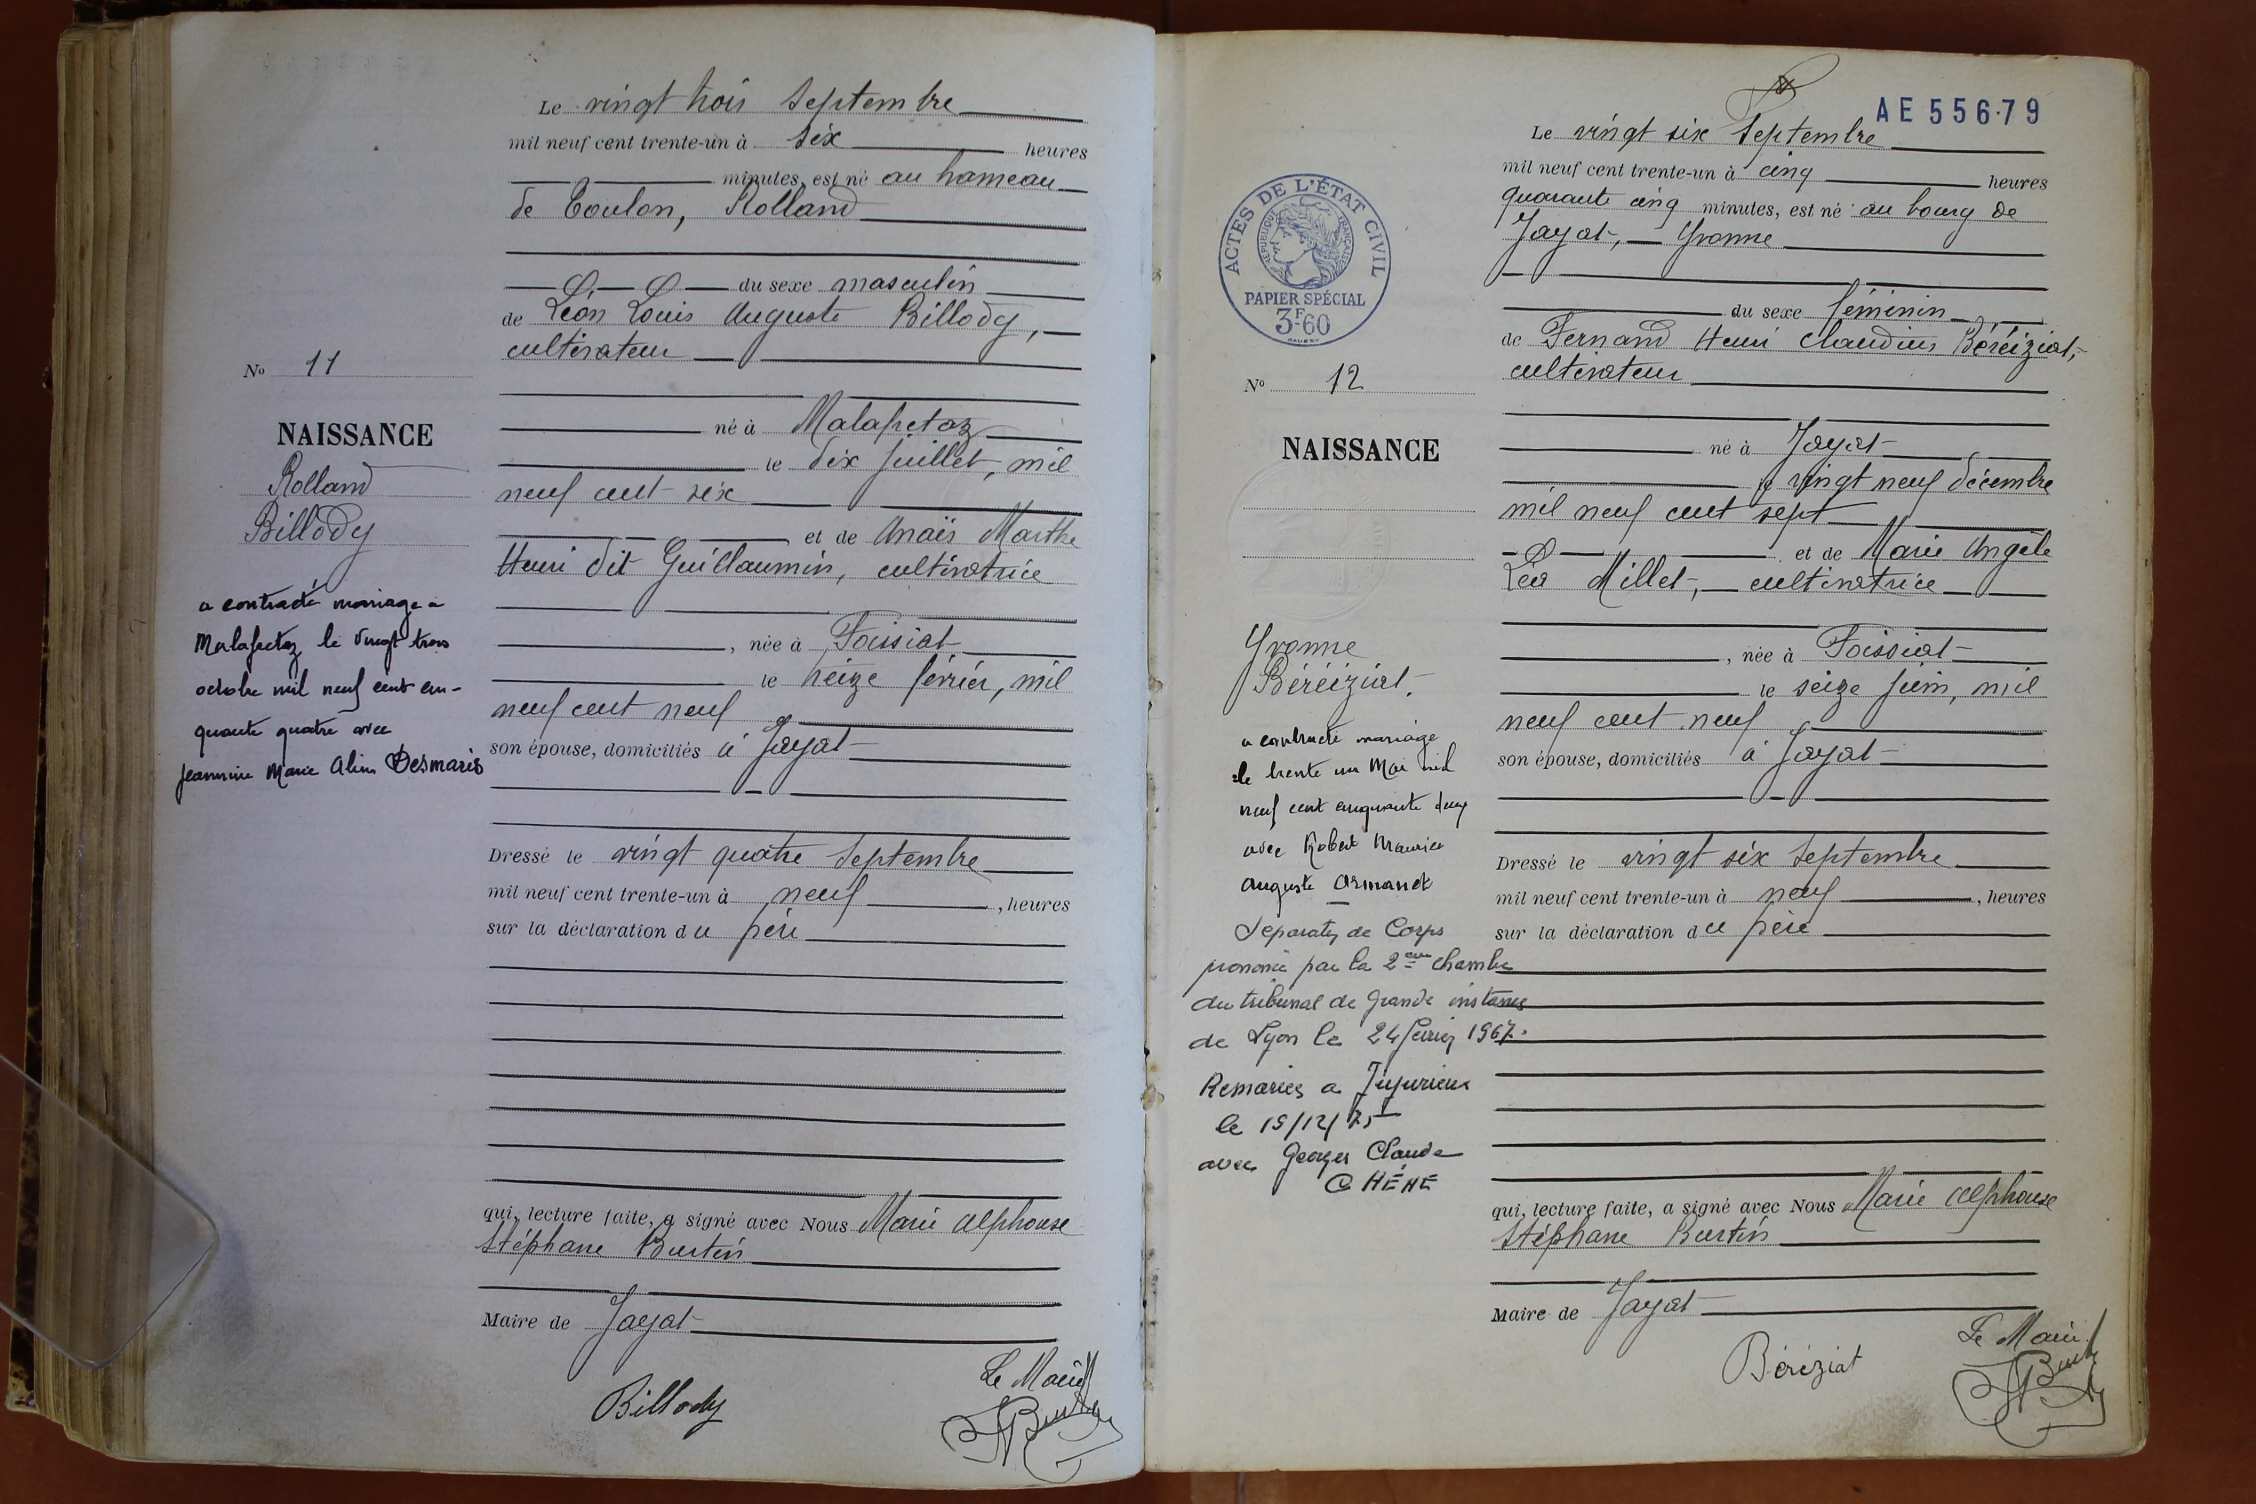 Le vingt trois Septembre
mil neuf cent trente-un à six heures
minutes, est né au hameau
de Toulon, Rolland
du sexe masculin
de Léon Louis Auguste Billody,
cultivateur
né à Malafretaz
le dix juillet, mil
neuf cent six
et de Anaïs Marthe
Henri dit Guillaumin, cultivatrice
, née à Foissiat
le treize février, mil
neuf cent neuf
son épouse, domiciliés à Jayat
Dressé le vingt quatre Septembre
mil neuf cent trente-un à neuf , heures
sur la déclaration du père
qui, lecture faite, a signé avec Nous Marie Alphonse
Stéphane Burtin
Maire de Jayat
Le Maire
Billody
No 11
NAISSANCE
Rolland
Billody
a contracté mariage à
Malafretaz le vingt trois
octobre mil neuf cent cin-
quante quatre avec
Jeannine Marie Aline Desmaris
AE 55679
Le vingt six Septembre
mil neuf cent trente-un à cinq heures
quarante cinq minutes, est né au bourg de
Jayat, Yvonne
du sexe féminin
de Fernand Henri Claudius Béréiziat,
cultivateur
né à Jayat
le vingt neuf décembre
mil neuf cent sept
et de Marie Angèle
Léa Millet, cultivatrice
, née à Foissiat
le seize juin, mil
neuf cent neuf
son épouse, domiciliés à Jayat
Dressé le vingt six Septembre
mil neuf cent trente-un à neuf , heures
sur la déclaration du père
qui, lecture faite, a signé avec Nous Marie Alphonse
Stéphane Burtin
Maire de Jayat
Le Maire
Béréziat
ACTES DE L'ÉTAT CIVIL
RÉPUBLIQUE FRANÇAISE
PAPIER SPÉCIAL
3F60
No 12
NAISSANCE
Yvonne
Béréiziat.
a contracté mariage
le trente un Mai mil
neuf cent cinquante deux
avec Robert Maurice
Auguste Armanet
Séparation de Corps
prononcé par la 2ème chambre
du tribunal de Grande instance
de Lyon le 24 février 1967.
Remariée a Jujurieux
le 19/12/75
avec Georges Claude
CHÊNE